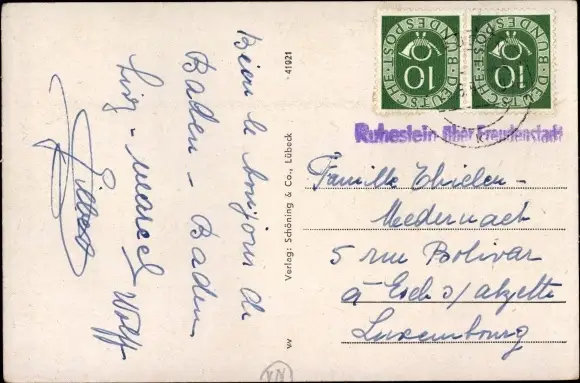 Bien le bonjour de
Baden - Baden
Marcel Wolff
Gilbert
41921
Verlag: Schöning & Co., Lübeck
DEUTSCHE BUNDESPOST
10
DEUTSCHE BUNDESPOST
10
Ruhestein über Freudenstadt
Famille Thielen-
Medernach
5 rue Bolivar
à Esch s/alzette
Luxembourg